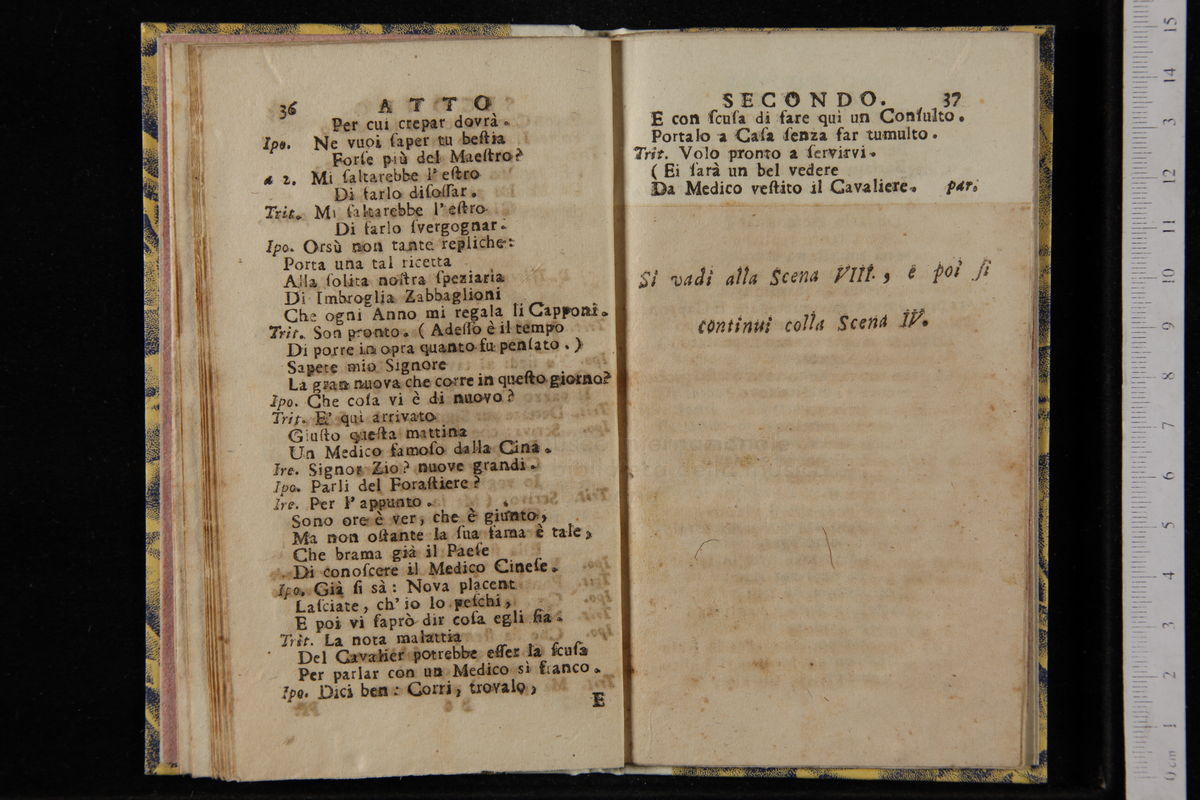 36 ATTO
Per cui crepar dovrà.
Ipo. Ne vuoi ſaper tu beſtia
Forſe più del Maeſtro?
a 2. Mi ſaltarebbe l'eſtro
Di farlo diſoſſar.
Trit. Mi ſaltarebbe l'eſtro
Di farlo ſvergognar.
Ipo. Orsù non tante repliche:
Porta una tal ricetta
Alla ſolita noſtra ſpeziaria
Di Imbroglia Zabbaglioni
Che ogni Anno mi regala li Capponi.
Trit. Son pronto. (Adeſſo è il tempo
Di porre in opra quanto fu penſato.)
Sapete mio Signore
La gran nuova che corre in queſto giorno?
Ipo. Che coſa vi è di nuovo?
Trit. E' qui arrivato
Giuſto queſta mattina
Un Medico famoſo dalla Cina.
Ire. Signor Zio? nuove grandi.
Ipo. Parli del Foraſtiere?
Ire. Per l'appunto.
Sono ore è ver, che è giunto,
Ma non oſtante la ſua fama è tale,
Che brama già il Paeſe
Di conoſcere il Medico Cineſe.
Ipo. Già ſi sà: Nova placent
Laſciate, ch'io lo peſchi,
E poi vi ſaprò dir coſa egli ſia.
Trit. La nota malattia
Del Cavalier potrebbe eſſer la ſcuſa
Per parlar con un Medico sì franco.
Ipo. Dici ben: Corri, trovalo,
E
SECONDO. 37
E con ſcuſa di fare qui un Conſulto.
Portalo a Caſa ſenza far tumulto.
Trit. Volo pronto a ſervirvi.
(Ei ſarà un bel vedere
Da Medico veſtito il Cavaliere. par.
Si vadi alla Scena VIII., e poi ſi
continui colla Scena IV.
0 cm 1 2 3 4 5 6 7 8 9 10 11 12 13 14 15